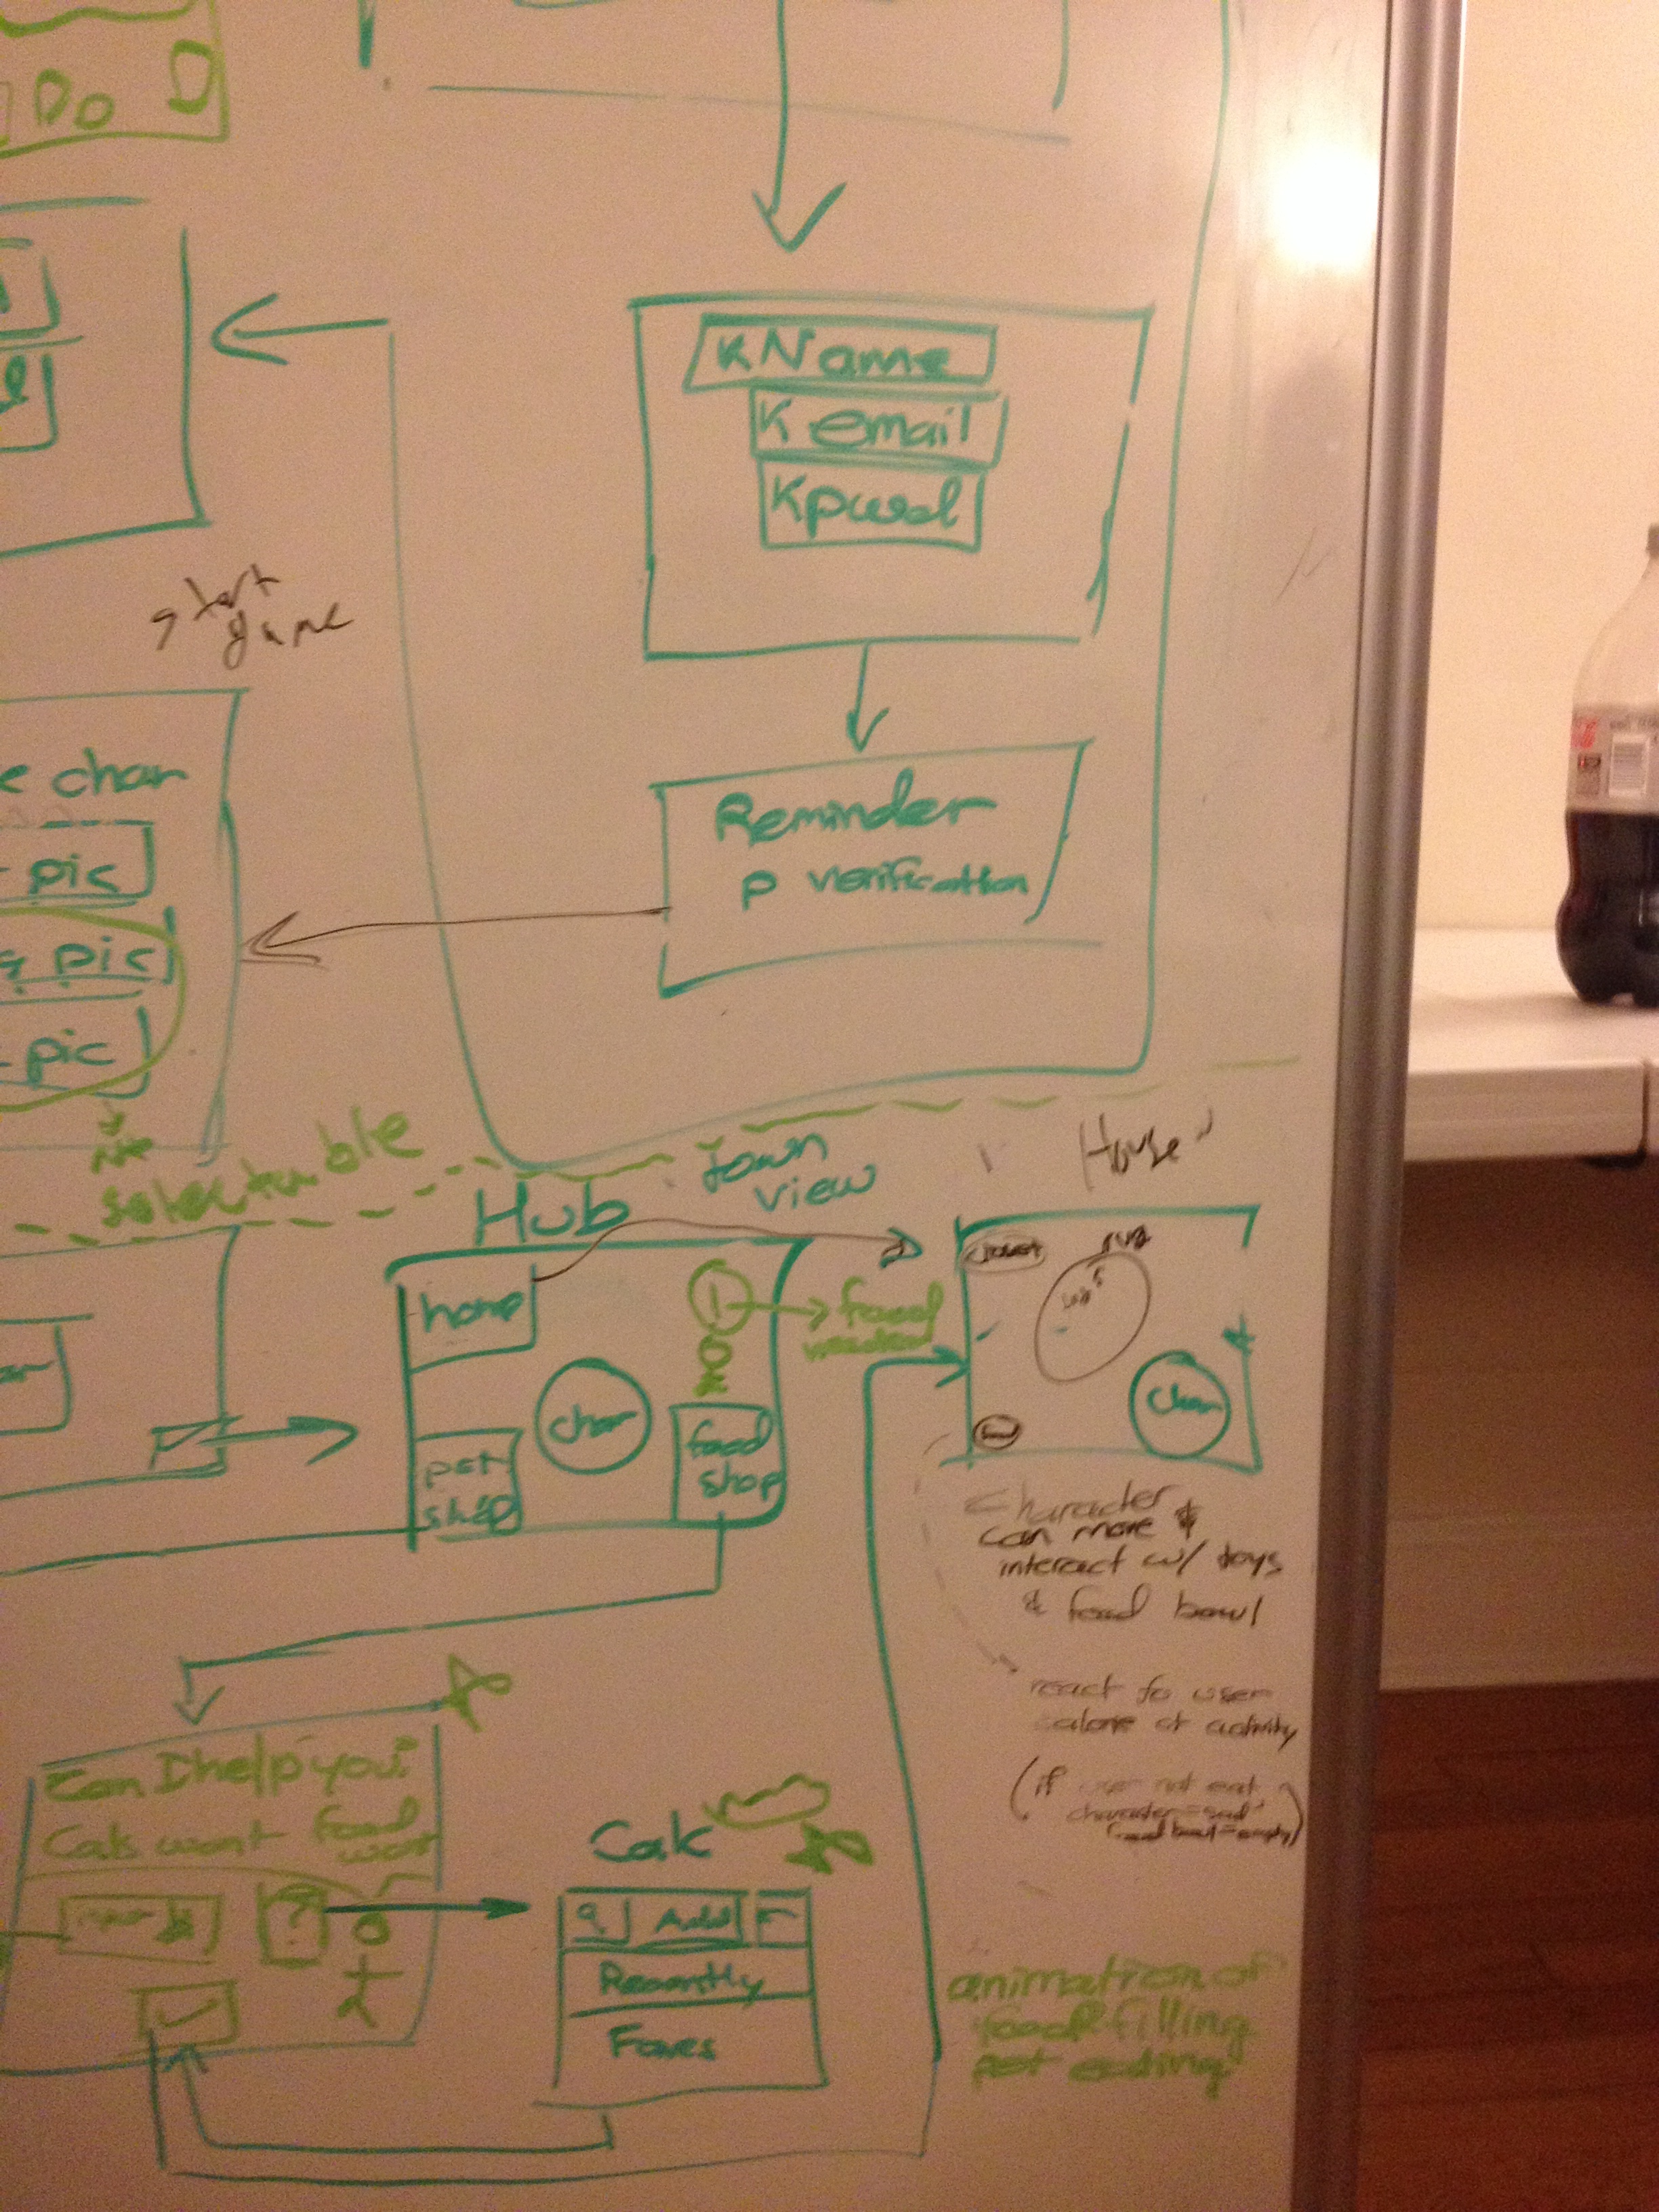 Do
KName
K email
Kpwd
start
game
Reminder
p verification
e char
pic
pic
pic
not
selectable
Hub
town
view
House
home
char
pet
shop
food
shop
food
closet
rug
char
food
Character
can move &
interact w/ toys
& food bowl
react to user
calorie or activity
(if user not eat
character = sad
food bowl = empty)
Can I help you?
Cals want food
?
Calc
Add
F
Recently
Faves
animation of
food filling
pet eating